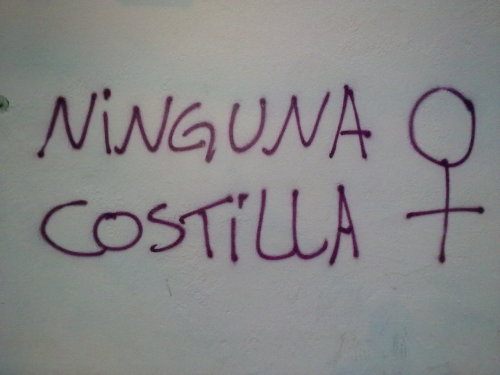 NINGUNA
COSTILLA